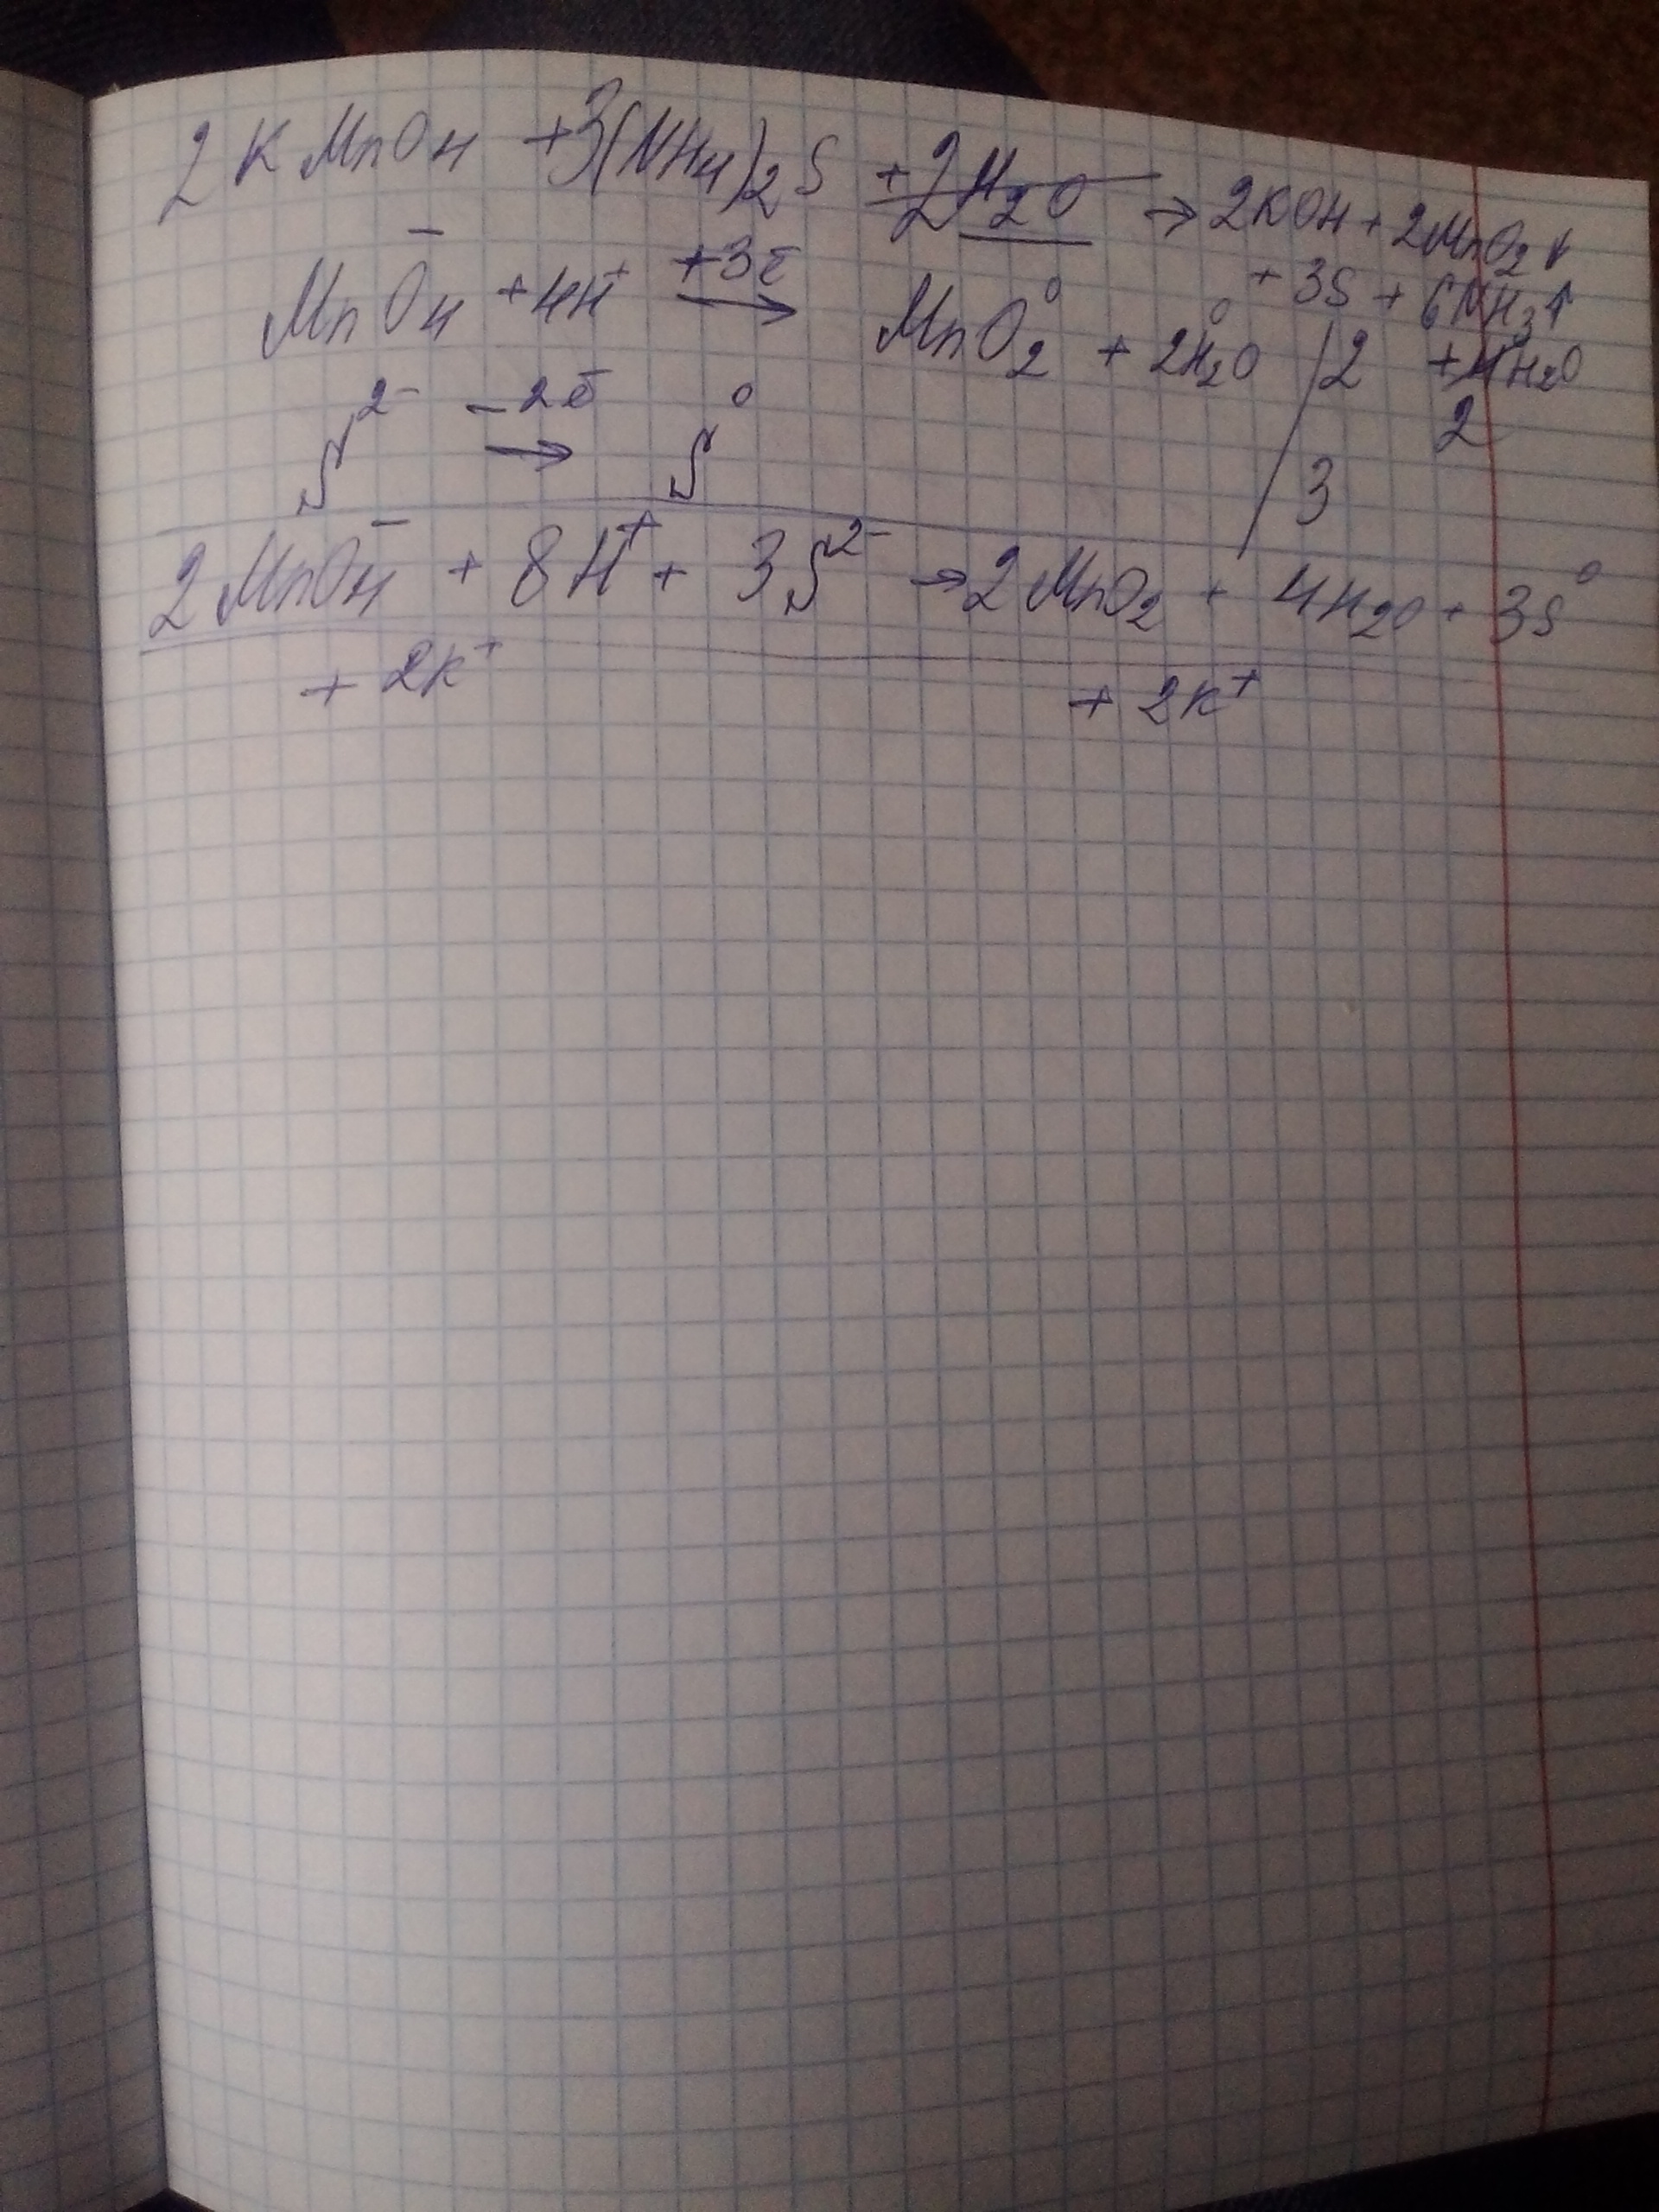 2KMnO4 +3(NH4)2S +2H2O → 2KOH + 2MnO2↓
+ 3S + 6NH3↑
+4H2O
2
MnO4⁻ +4H⁺ +3ē → MnO2⁰ + 2H2O⁰ | 2
S²⁻ -2ē → S⁰ | 3
2MnO4⁻ + 8H⁺ + 3S²⁻ → 2MnO2 + 4H2O + 3S⁰
+ 2K⁺ + 2K⁺